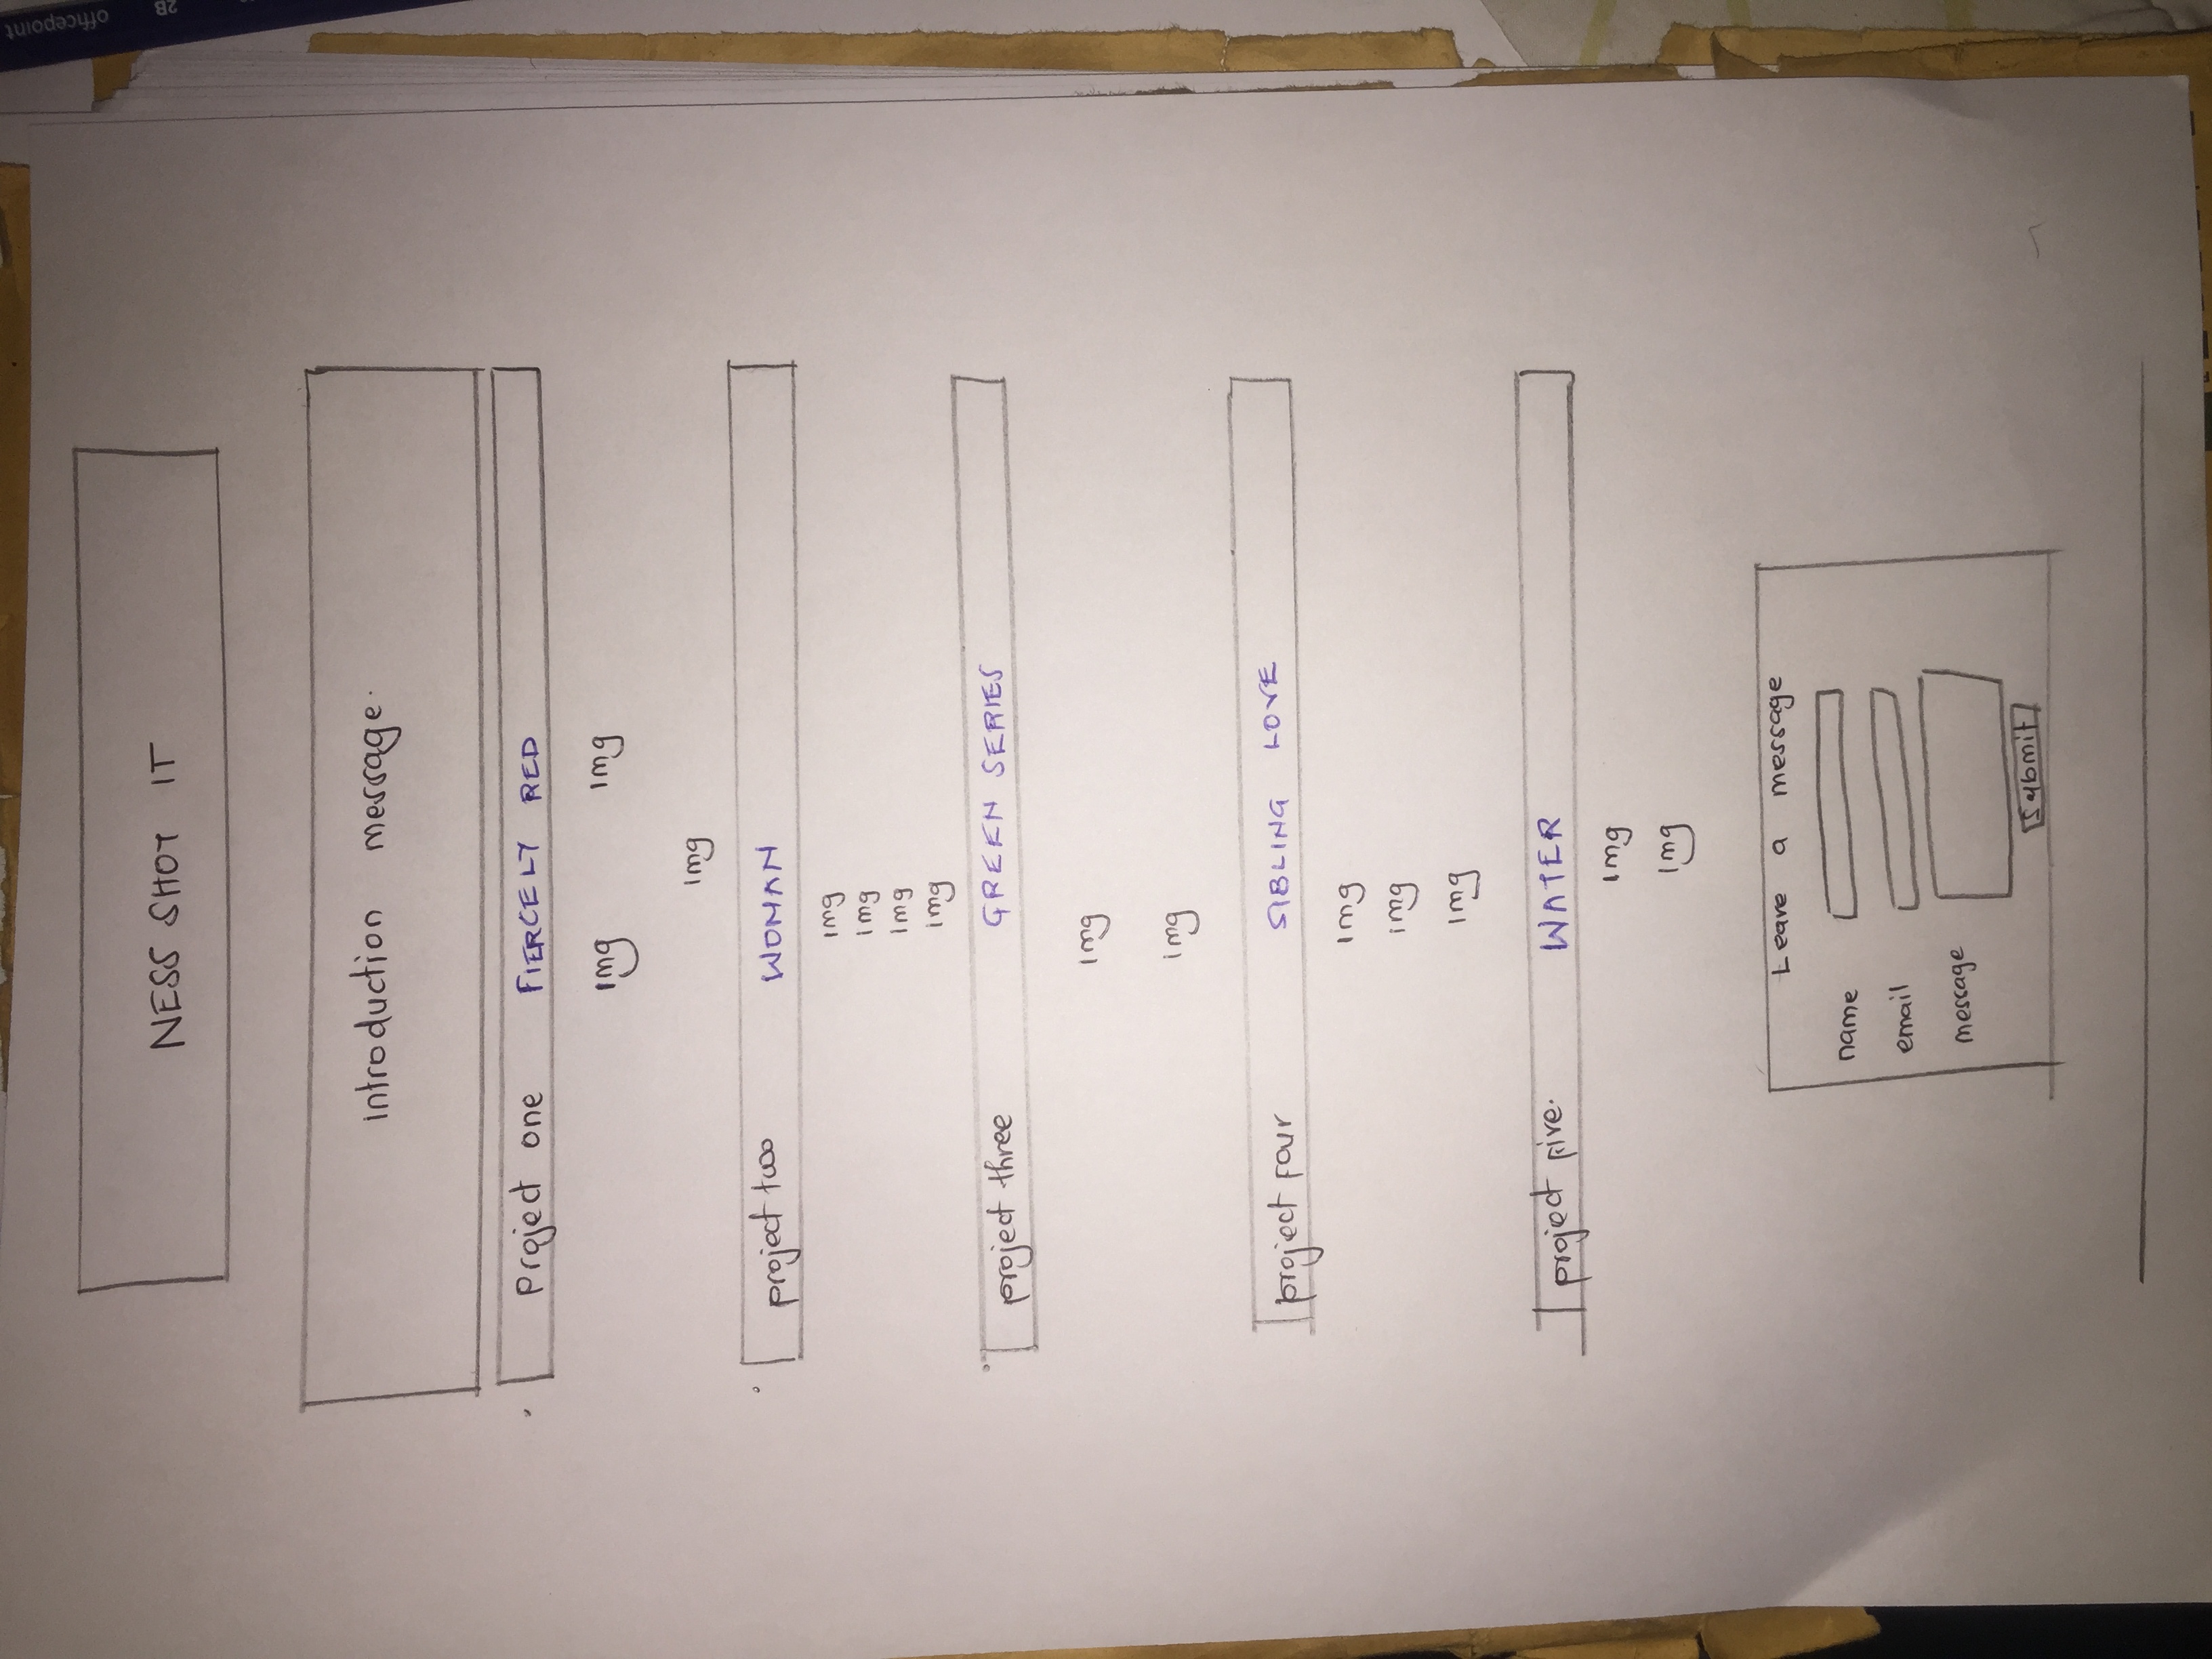 officepoint
2B
NESS SHOT IT
Introduction message.
Project one FIERCELY RED
img img
img
project two WOMAN
img
img
img
img
project three GREEN SERIES
img
img
project four SIBLING LOVE
img
img
img
project five. WATER
img
img
Leave a message
name
email
message
Submit